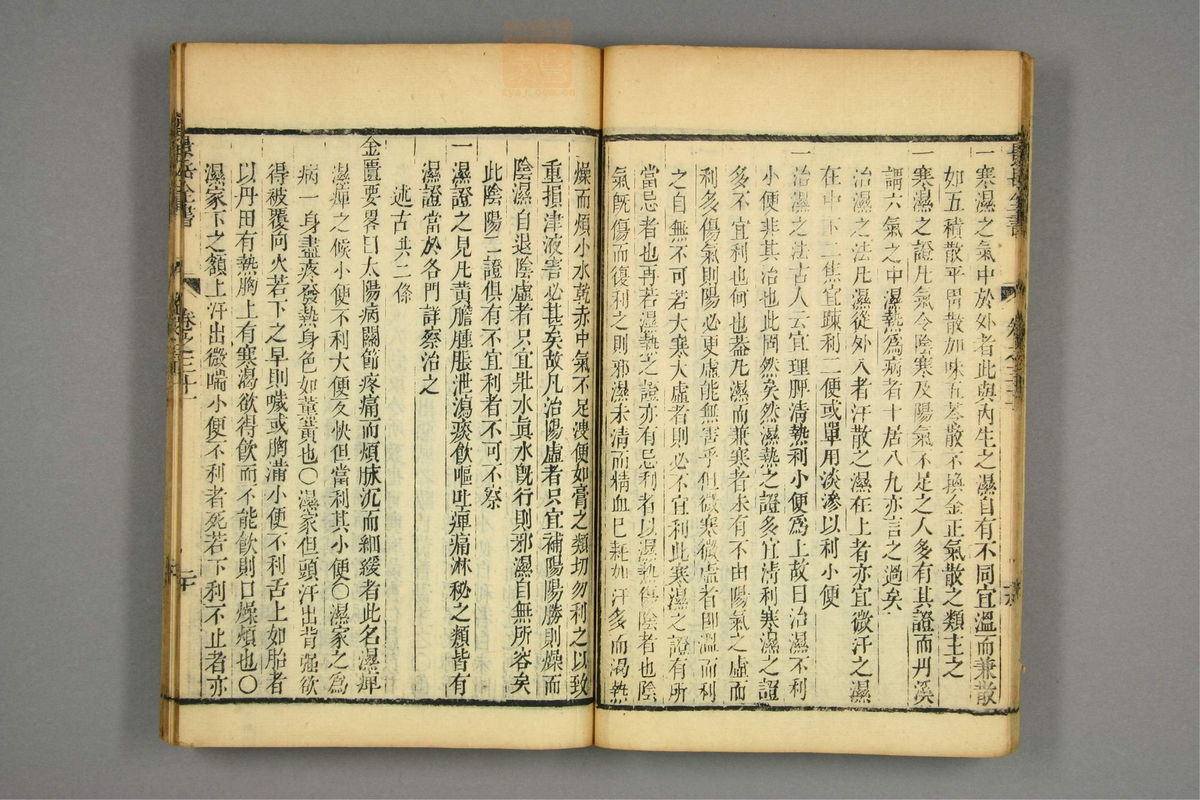 一寒濕之氣中於外者此與內生之濕自有不同宜溫而兼散
如五積散平胃散加味五苓散不換金正氣散之類主之
一寒濕之證凡氣令陰寒及陽氣不足之人多有其證而丹溪
謂六氣之中濕熱為病者十居八九亦言之過矣
一治濕之法凡濕從外入者汗散之濕在上者亦宜微汗之濕
在中下二焦宜疎利二便或單用淡滲以利小便
一治濕之法古人云宜理脾清熱利小便為上故曰治濕不利
小便非其治也此固然矣然濕熱之證多宜清利寒濕之證
多不宜利也何也葢凡濕而兼寒者未有不由陽氣之虛而
利多傷氣則陽必更虛能無害乎但微寒微虛者即溫而利
之自無不可若大寒大虛者則必不宜利此寒濕之證有所
當忌者也再若濕熱之證亦有忌利者以濕熱傷陰者也陰
氣既傷而復利之則邪濕未清而精血已耗如汗多而渴熱
燥而煩小水乾赤中氣不足溲便如膏之類切勿利之以致
重損津液害必甚矣故凡治陽虛者只宜補陽陽勝則燥而
陰濕自退陰虛者只宜壯水真水既行則邪濕自無所容矣
此陰陽二證俱有不宜利者不可不察
一濕證之見凡黃膽腫脹泄瀉痰飲嘔吐痺痛淋秘之類皆有
濕證當於各門詳察治之
述古共二條
金匱要畧曰太陽病關節疼痛而煩脉沉而細緩者此名濕痺
濕痺之候小便不利大便反快但當利其小便〇濕家之為
病一身盡疼發熱身色如薰黃也〇濕家但頭汗出背強欲
得被覆向火若下之早則噦或胸滿小便不利舌上如胎者
以丹田有熱胸上有寒渴欲得飲而不能飲則口燥煩也〇
濕家下之額上汗出微喘小便不利者死若下利不止者亦